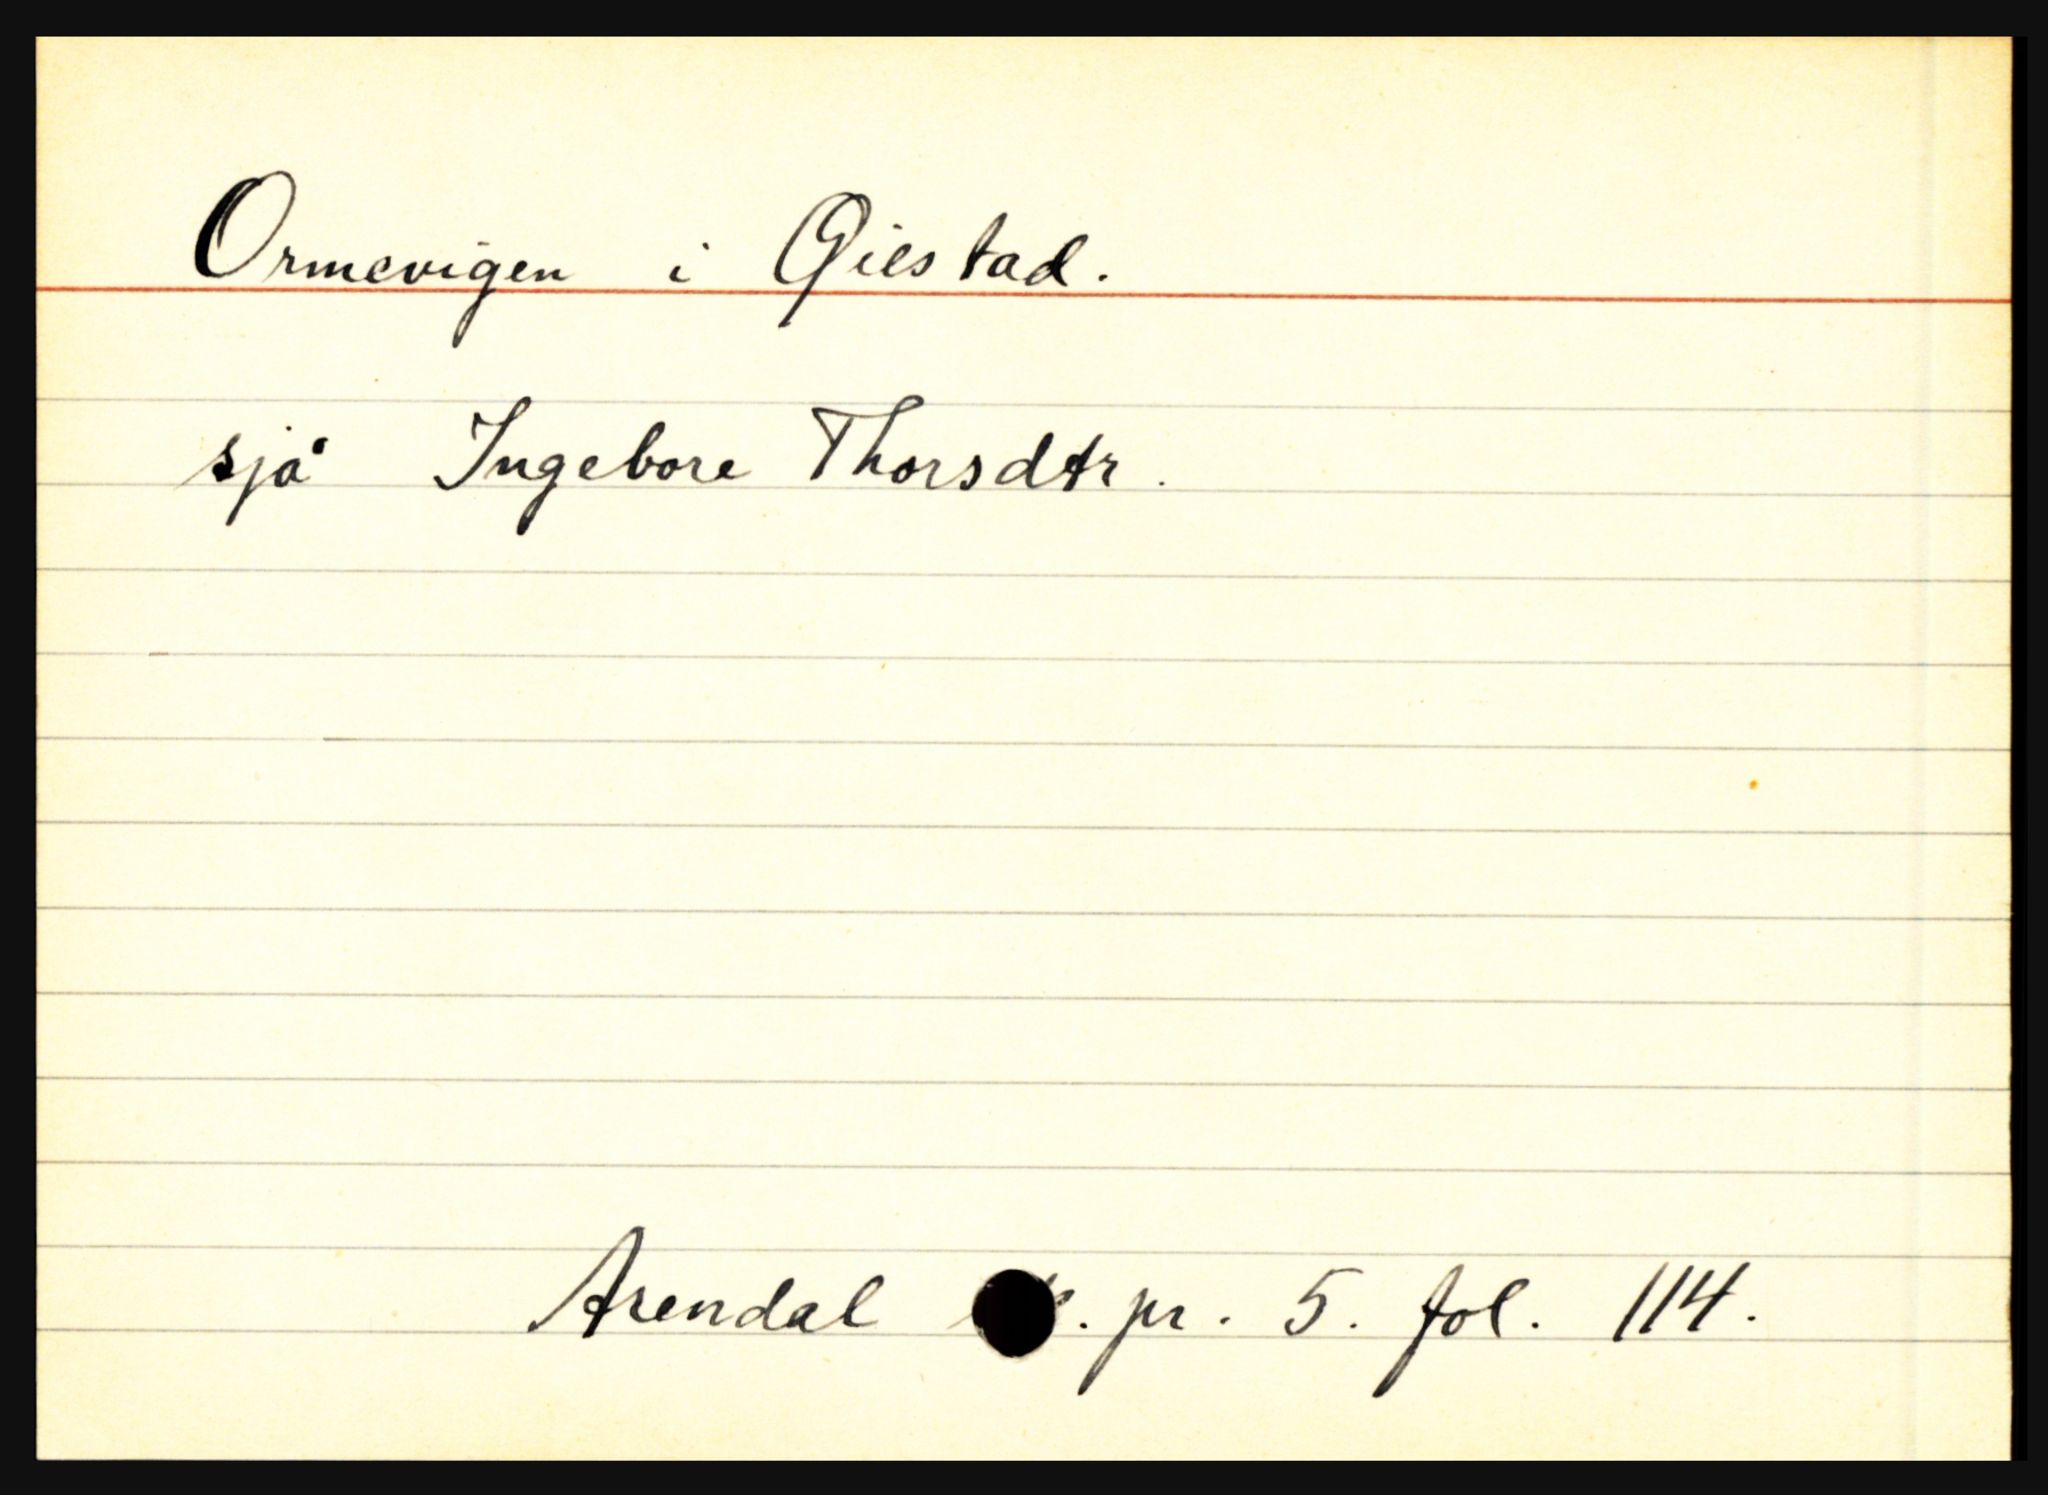 Ormevigen i Giestad.
sjå Ingebore Thorsdtr.
Arendal pr. 5. fol. 114.